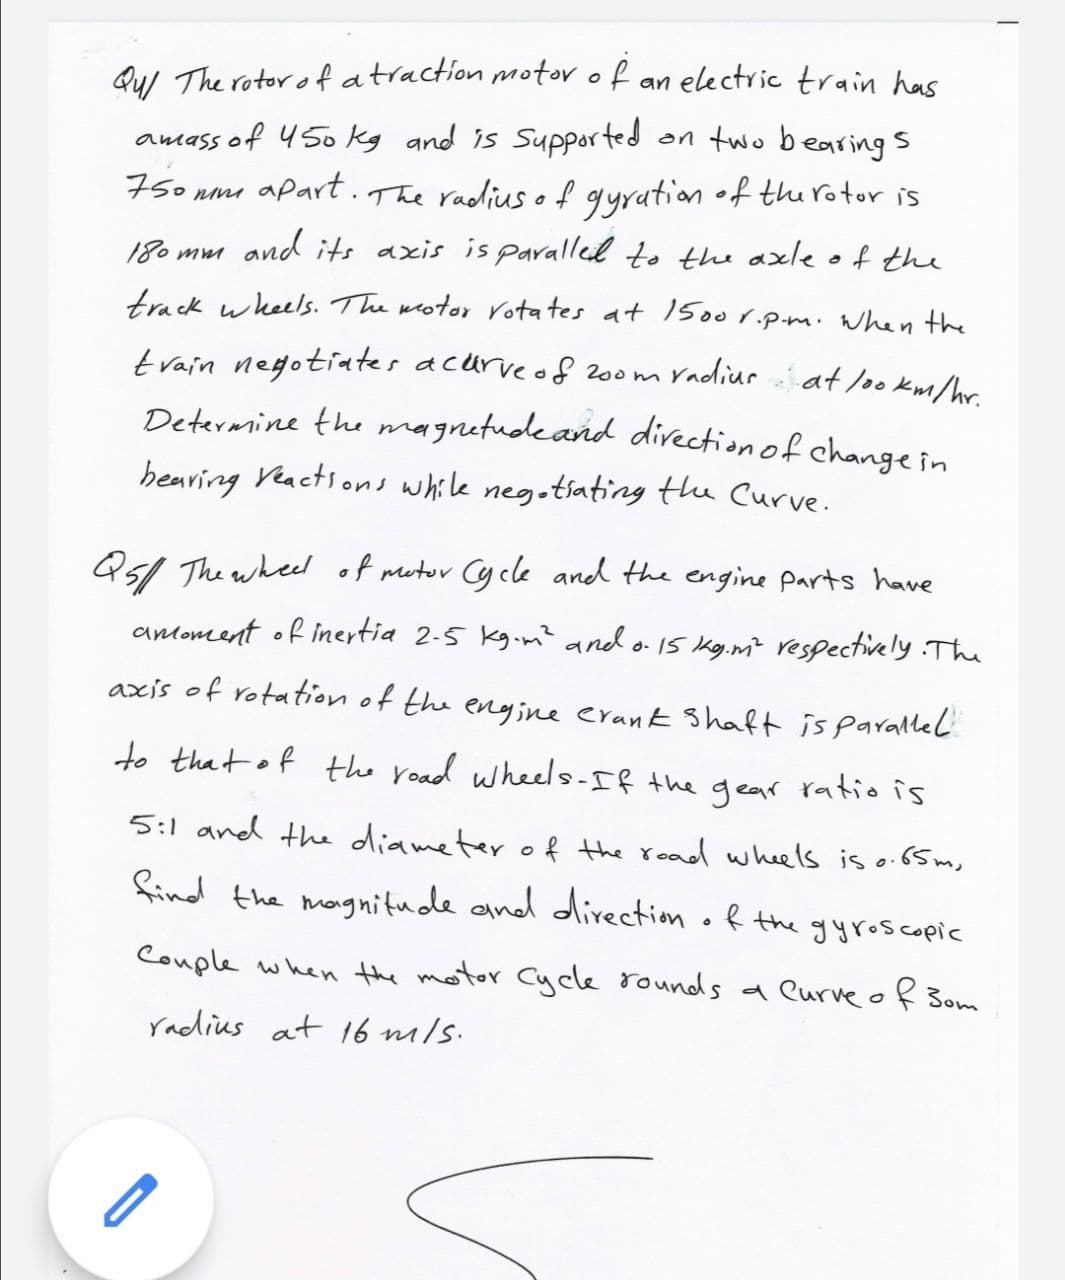 Q4// The rotor of a traction motor of an electric train has
amass of 450 kg and is Supported on two bearings
750 mm apart. The radius of gyration of the rotor is
180 mm and its axis is parallel to the axle of the
track wheels. The motor rotates at 1500 r.p.m. When the
train negotiates a curve of 200m radius at 100 km/hr.
Determine the magnetude and direction of change in
bearing reactions while negotiating the Curve.
Q5// The wheel of motor Cycle and the engine parts have
amoment of inertia 2.5 kg.m² and 0.15 kg.m² respectively. The
axis of rotation of the engine crank shaft is parallel
to that of the road wheels. If the gear ratio is
5:1 and the diameter of the road wheels is 0.65m,
find the magnitude and direction of the gyroscopic
Couple when the motor Cycle rounds a Curve of 30m
radius at 16 m/s.